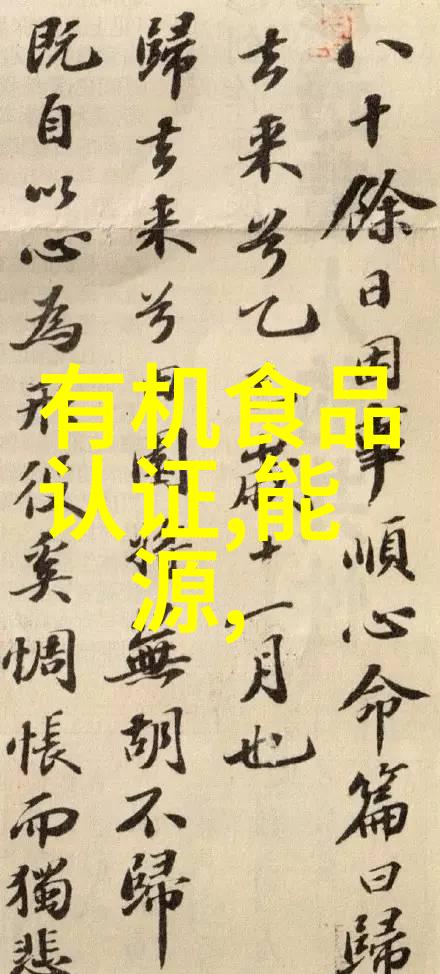 八十餘日因事順心命篇曰歸
去来兮乙巳歲十一月也
歸去来兮田園将無胡不歸
既自以心為形役奚惆悵而獨悲
有机食品
认证,能
源,